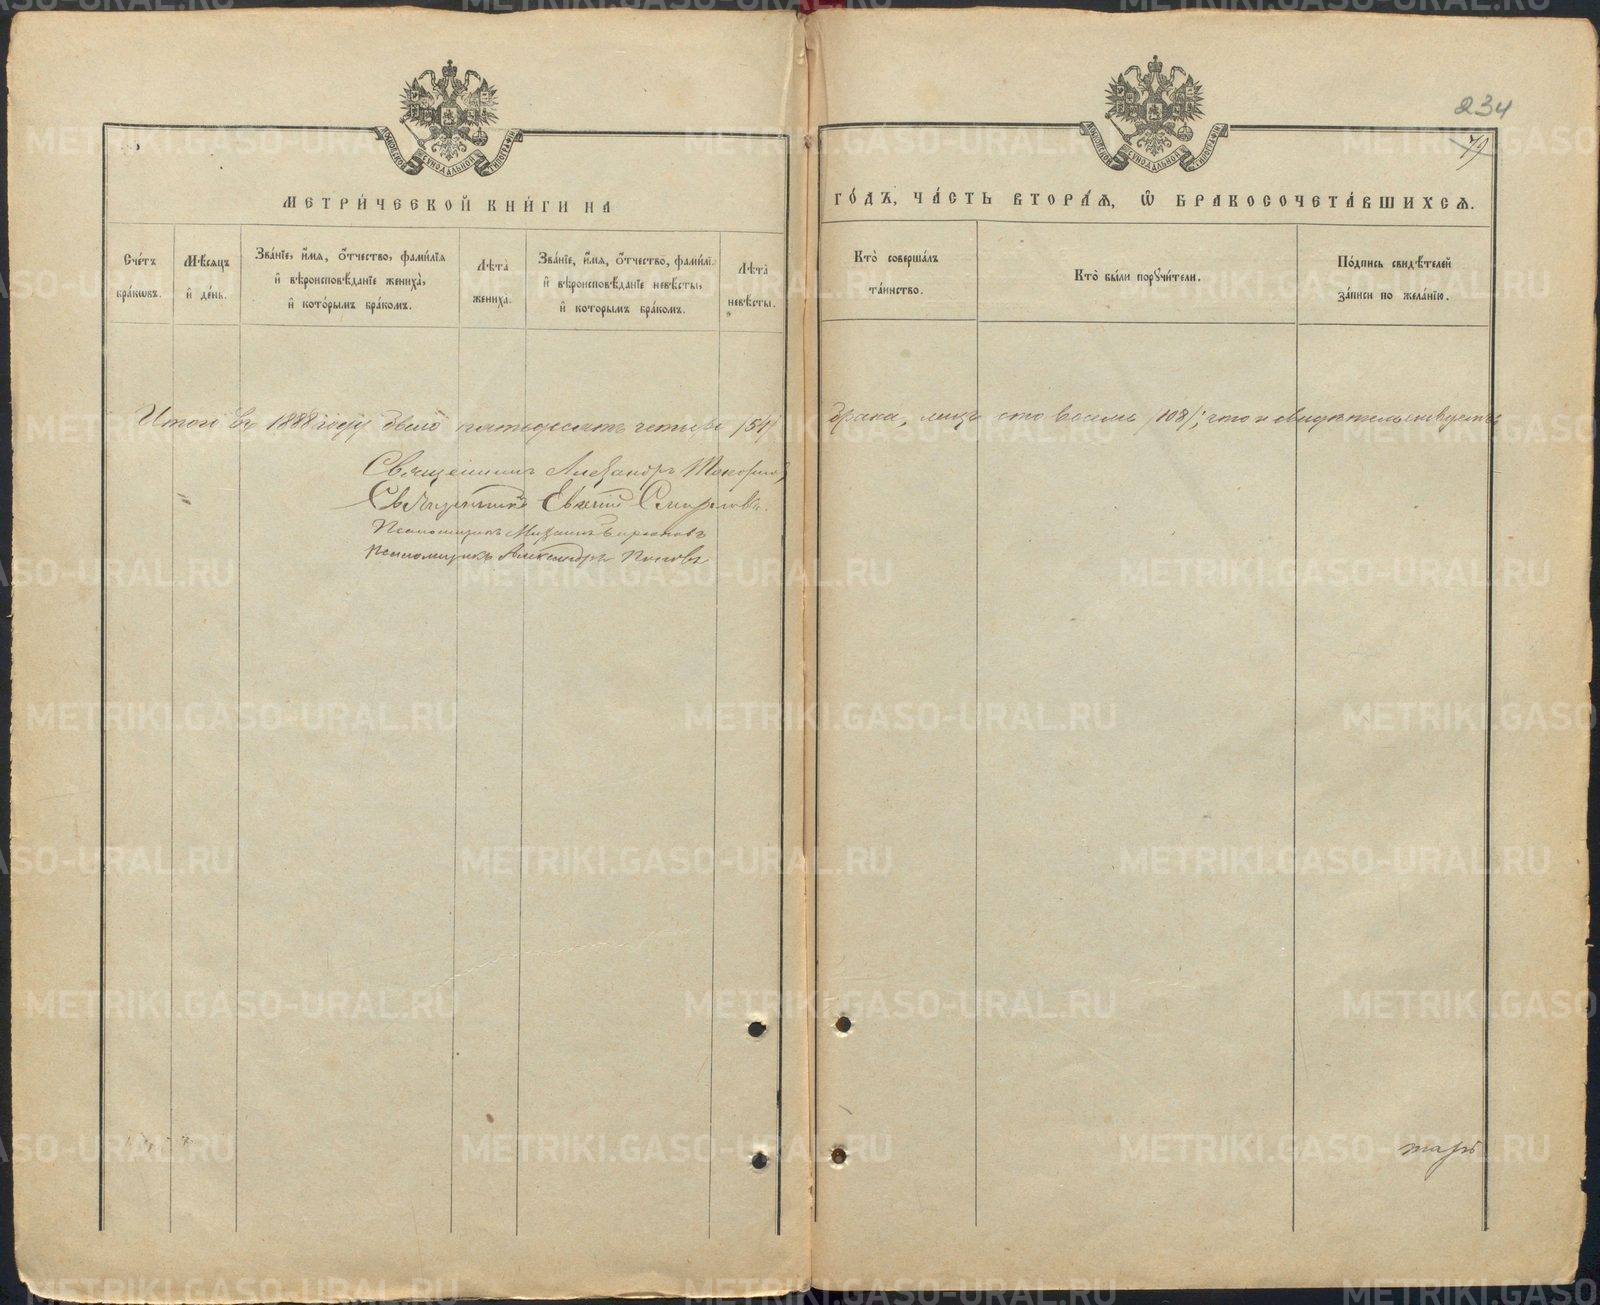 234
79
МЕТРИ́ЧЕСКОЙ КНИ́ГИ НА
ГО́ДЪ, ЧА́СТЬ ВТОРА́Ѧ, Ѿ БРАКОСОЧЕТА́ВШИХСѦ.
Сче́тъ бра́кѡвъ.
Мѣ́сѧцъ и҆ де́нь.
Зва́нїе, и҆́мѧ, ѻ҆́тчество, фами́лїѧ и҆ вѣроисповѣ́данїе жениха̀, и҆ кото́рымъ бра́комъ.
Лѣта̀ жениха̀.
Зва́нїе, и҆́мѧ, ѻ҆́тчество, фами́лїѧ и҆ вѣроисповѣ́данїе невѣ́сты, и҆ кото́рымъ бра́комъ.
Лѣта̀ невѣ́сты.
Кто̀ соверша́лъ та́инство.
Кто̀ бы́ли порꙋчи́тели.
По́дпись свидѣ́телей за́писи по жела́нїю.
Итого въ 1888 году было пятьдесятъ четыре /54/ брака, лицъ сто восемь /108/; что и свидѣтельствуемъ
Священникъ Александръ
Священникъ Евгеній Смирновъ.
Псаломщикъ Михаилъ
Псаломщикъ Александръ Поповъ
METRIKI.GASO-URAL.RU